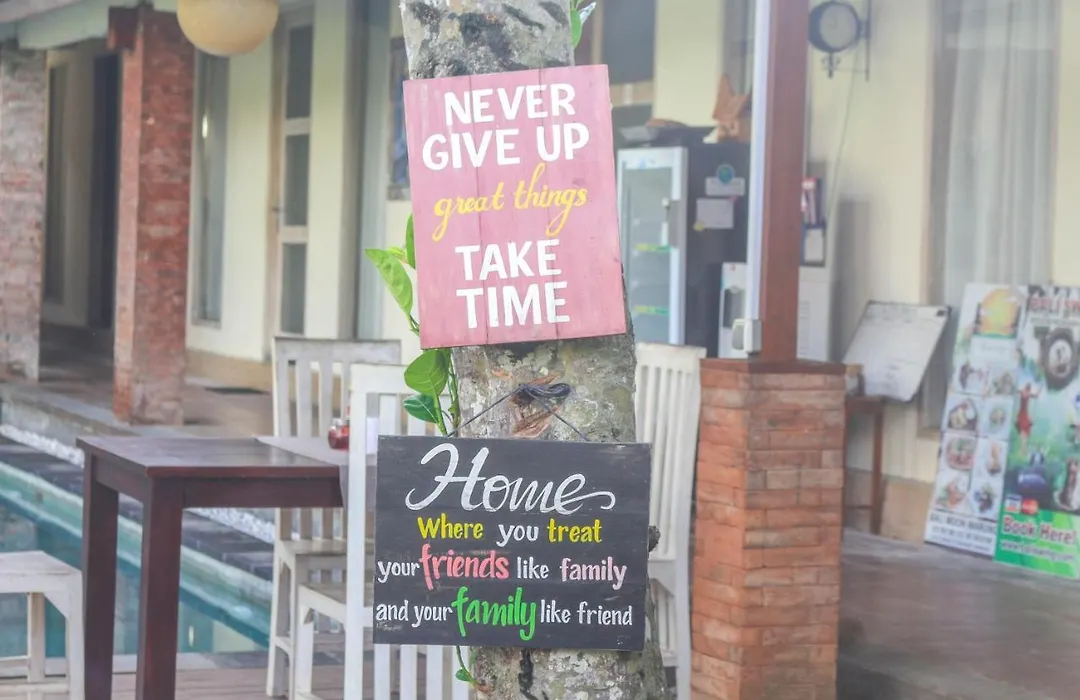 NEVER
GIVE UP
great things
TAKE
TIME
Home
Where you treat
your friends like family
and your family like friend
Book Here!